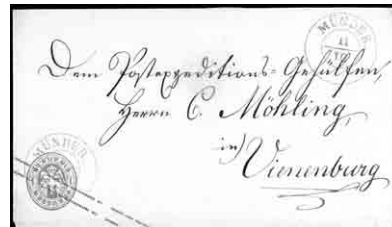 MÜNDER
11
Dem Postexpeditions-Gehülfen,
Herrn C. Möhling,
in
Vienenburg
MÜNDER